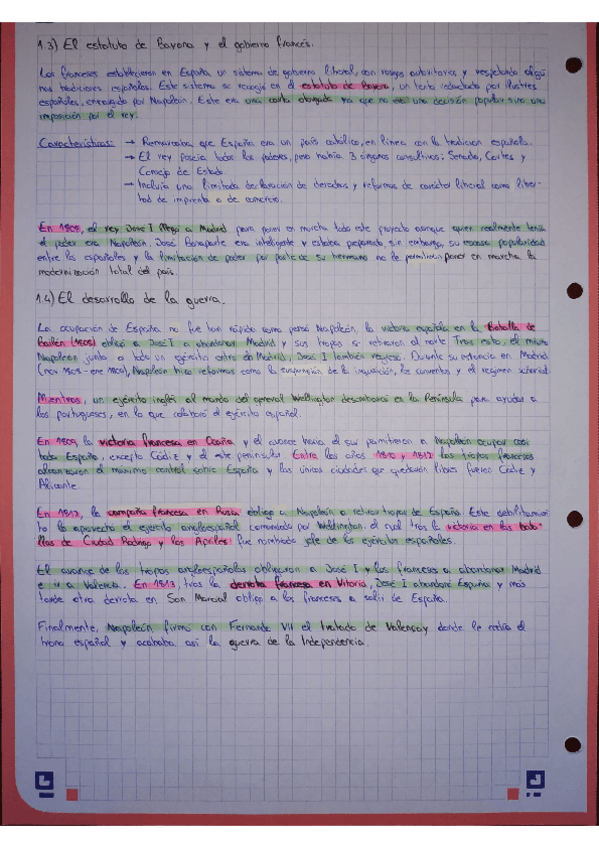 1.3) El estatuto de Bayona y el gobierno francés.
Los franceses establecieron en España un sistema de gobierno liberal, con rasgos autoritarios y respetando algu
nas tradiciones españolas. Este sistema se recogió en el estatuto de Bayona, un texto redactado por ilustres
españoles, encargado por Napoleón. Este era una carta otorgada ya que no era una decisión popular sino una
imposición por el rey.
Características: → Remarcaba que España era un país católico, en línea con la tradición española.
→ El rey poseía todos los poderes, pero había 3 órganos consultivos: Senado, Cortes y
Consejo de Estado.
→ Incluía una limitada declaración de derechos y reformas de carácter liberal como liber-
tad de imprenta o de comercio.
En 1808, el rey José I llegó a Madrid para poner en marcha todo este proyecto aunque quien realmente tenía
el poder era Napoleón. José Bonaparte era inteligente y estaba preparado, sin embargo, su escasa popularidad
entre los españoles y la limitación de poder por parte de su hermano no le permitieron poner en marcha la
modernización total del país.
1.4) El desarrollo de la guerra.
La ocupación de España no fue tan rápida como pensó Napoleón, la victoria española en la Batalla de
Bailén (1808) obligó a José I a abandonar Madrid y sus tropas se retiraron al norte. Tras esto, el mismo
Napoleón junto a todo un ejército entró en Madrid, José I también regresó. Durante su estancia en Madrid
(nov 1808 - ene 1809), Napoleón hizo reformas como la suspensión de la inquisición, los conventos y el régimen señorial.
Mientras, un ejército inglés al mando del general Wellington desembarcó en la Península para ayudar a
los portugueses, en lo que colaboró el ejército español.
En 1809 la victoria francesa en Ocaña y el avance hacia el sur permitieron a Napoleón ocupar casi
toda España, excepto Cádiz y el este peninsular. Entre los años 1810 y 1812 las tropas francesas
alcanzaron el máximo control sobre España y las únicas ciudades que quedaron libres fueron Cádiz y
Alicante.
En 1812, la campaña francesa en Rusia obligó a Napoleón a retirar tropas de España. Este debilitamien
to lo aprovechó el ejército angloespañol comandado por Wellington, el cual tras la victoria en las bata
llas de Ciudad Rodrigo y los Arpiles fue nombrado jefe de los ejércitos españoles.
El avance de las tropas angloespañolas obligaron a José I y los franceses a abandonar Madrid
e ir a Valencia. En 1813, tras la derrota francesa en Vitoria, José I abandonó España y más
tarde otra derrota en San Marcial obligó a los franceses a salir de España.
Finalmente, Napoleón firmó con Fernando VII el tratado de Valençay donde le cedía el
trono español y acababa así la guerra de la Independencia.